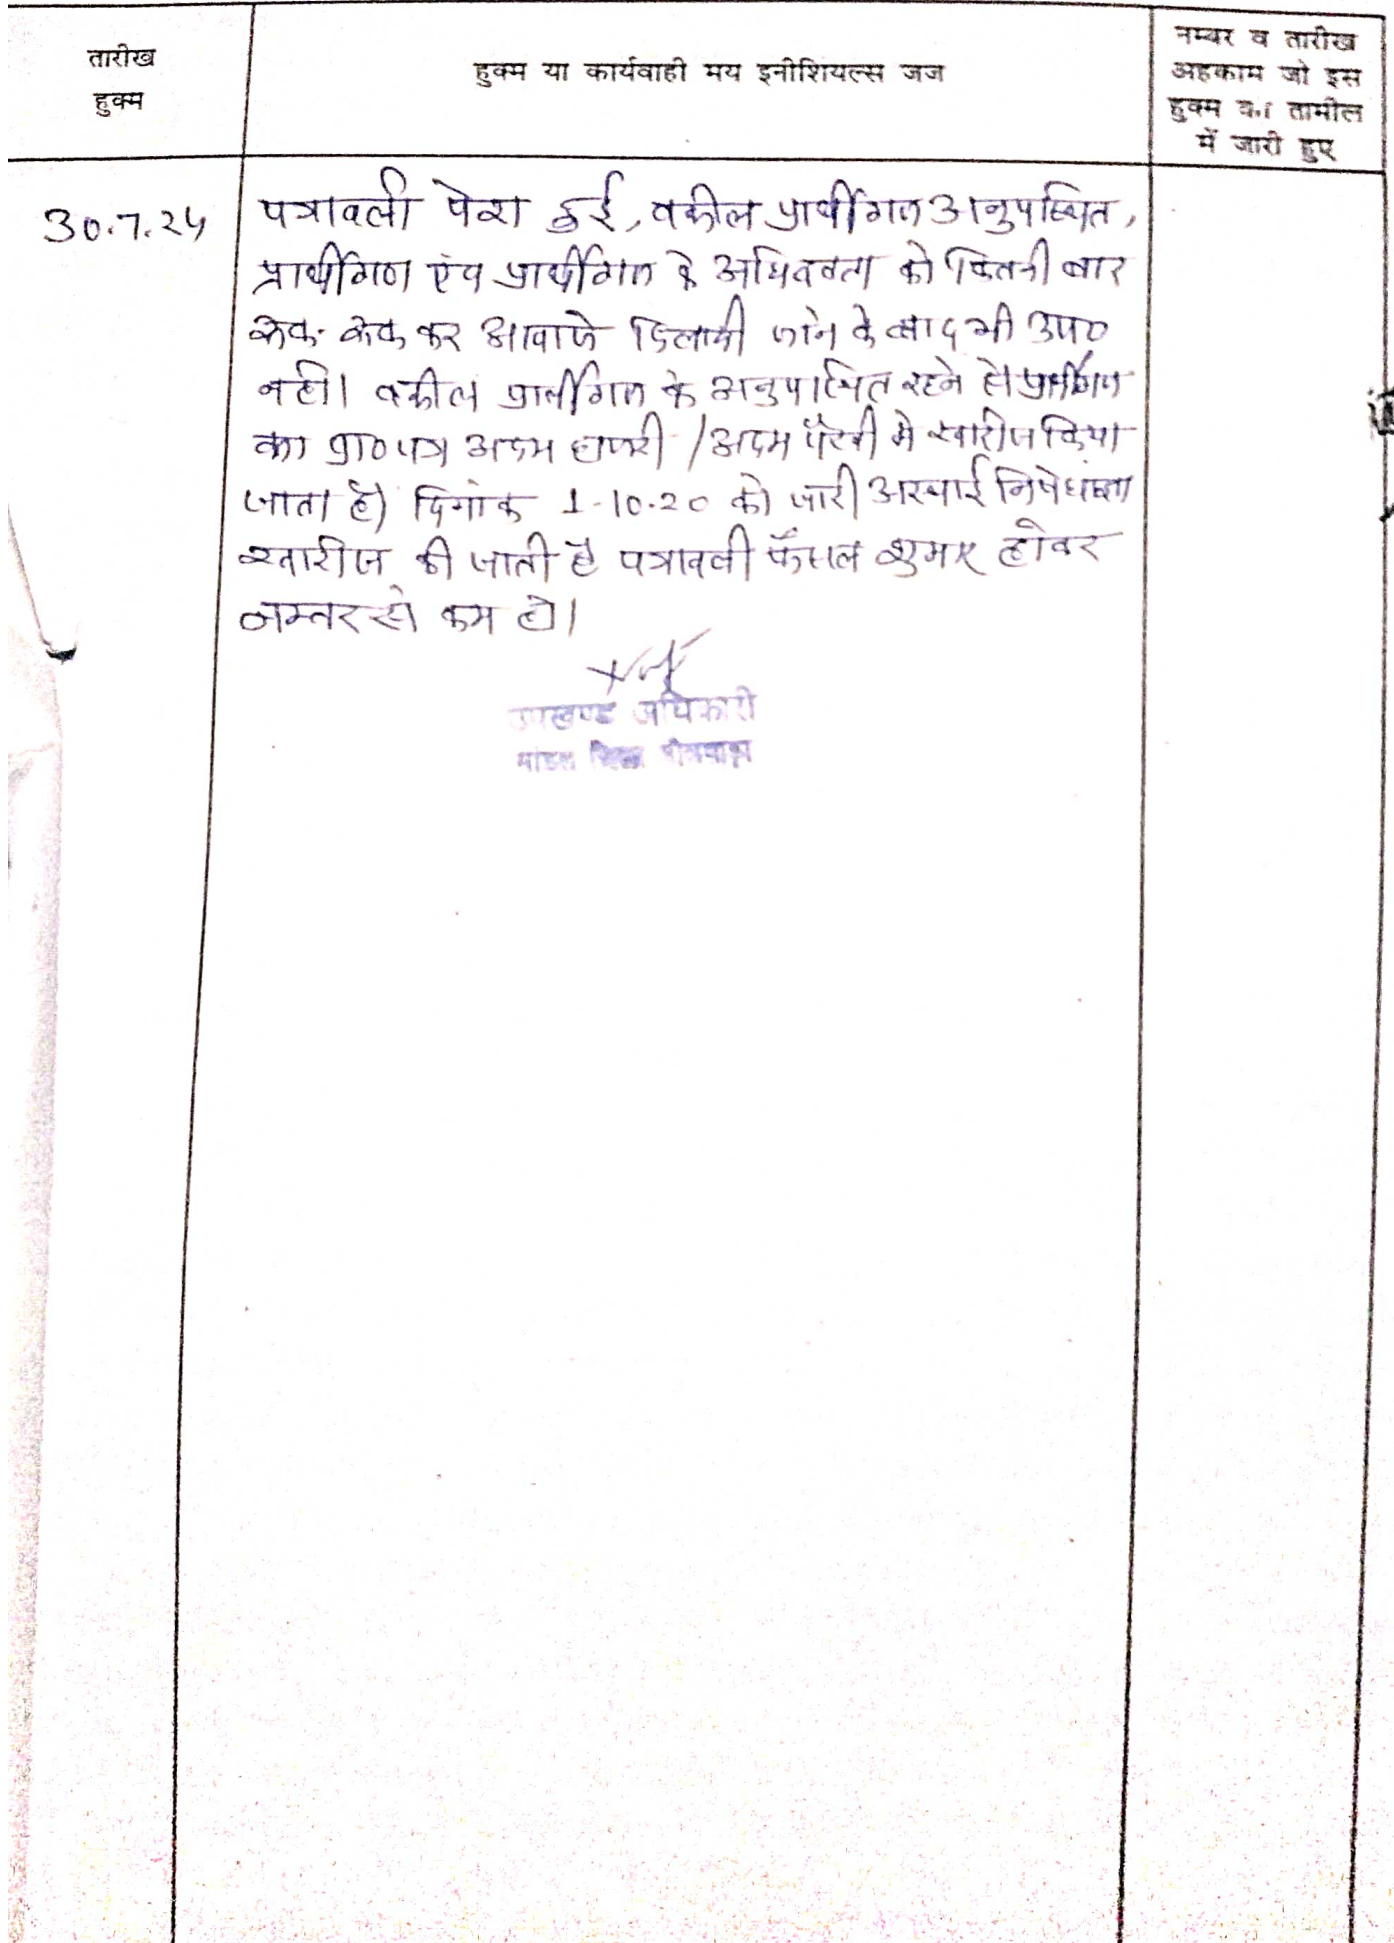 तारीख
हुक्म
हुक्म या कार्यवाही मय इनीशियल्स जज
नम्बर व तारीख
अहकाम जो इस
हुक्म की तामील
में जारी हुए
30.7.24
पत्रावली पेश हुई, वकील प्रार्थीगण अनुपस्थित,
प्रार्थीगण एंव प्रार्थीगण के अधिवक्ता को कितनी बार
रूक-रूक कर आवाजे दिलायी जाने के बाद भी उप०
नही। वकील प्रार्थीगण के अनुपस्थित रहने से प्रार्थीगण
का प्रा० पत्र अदम हाजरी / अदम पैरवी मे खारीज किया
जाता है) दिनांक 1-10-20 को जारी अस्थाई निषेधाज्ञा
खारीज की जाती है पत्रावली फैसल शुमार होकर
नम्बर से कम हो।
उपखण्ड अधिकारी
मांडल जिला भीलवाड़ा